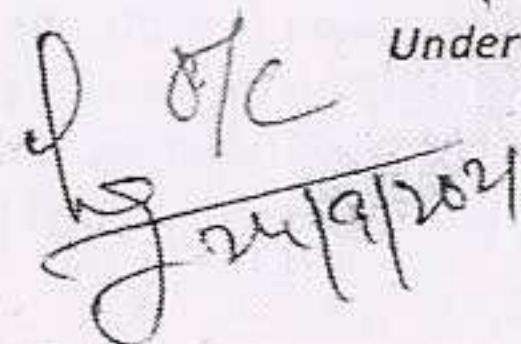 Under
O/C
24/9/2021